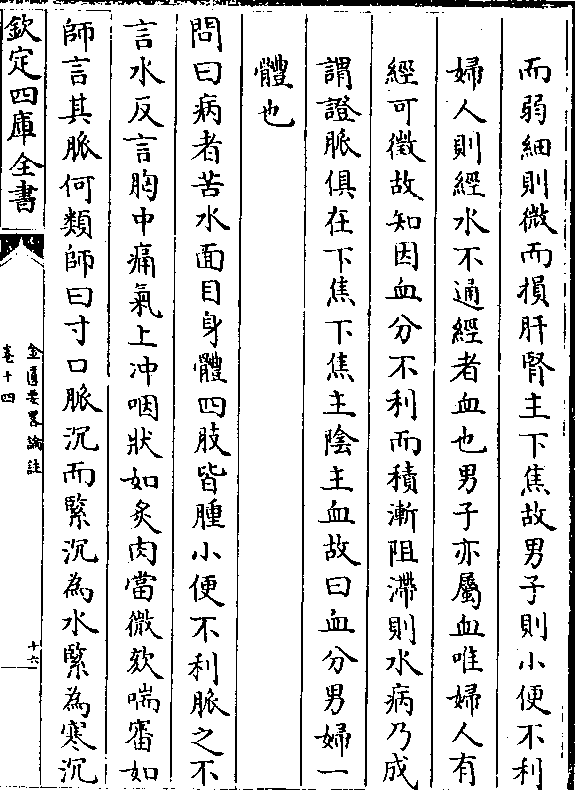 而弱細則微而損肝腎主下焦故男子則小便不利
婦人則經水不通經者血也男子亦屬血唯婦人有
經可徵故知因血分不利而積漸阻滯則水病乃成
謂證脈俱在下焦下焦主陰主血故曰血分男婦一
體也
問曰病者苦水面目身體四肢皆腫小便不利脈之不
言水反言胸中痛氣上冲咽狀如炙肉當微欬喘審如
師言其脈何類師曰寸口脈沉而緊沉為水緊為寒沉
欽定四庫全書
金匱要畧論註
卷十四
十六